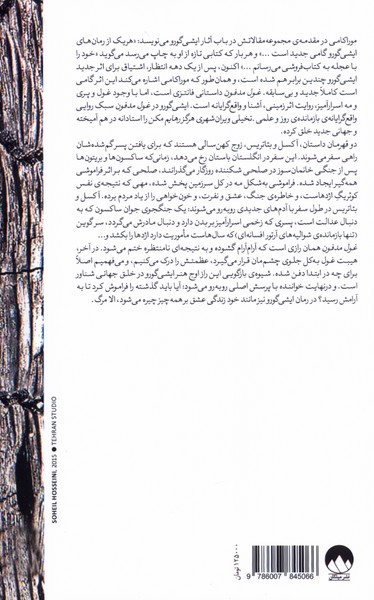 موراکامی در مقدمه‌ی مجموعه‌مقالاتش در باب آثار ایشی‌گورو می‌نویسد: «هر یک از رمان‌های
ایشی‌گورو گامی جدید است ...» و هر بار که کتابی تازه از او به چاپ می‌رسد می‌گوید «خود را
با عجله به کتاب‌فروشی می‌رسانم ...» اکنون، پس از یک دهه انتظار، اشتیاق برای اثر جدید
ایشی‌گورو چندین برابر هم شده است، و همان‌طور که موراکامی اشاره می‌کند این اثر گامی
است کاملاً جدید و بی‌سابقه. غول مدفون داستانی فانتزی است، اما با وجود غول و پری
و مه اسرارآمیز، روایت اثر زمینی، آشنا و واقع‌گرایانه است. ایشی‌گورو در غول مدفون سبک روایی
واقع‌گرایانه‌ی بازمانده‌ی روز و علمی ـ تخیلی ویران‌شهری هرگز رهایم مکن را استادانه در هم آمیخته
و جهانی جدید خلق کرده.
دو قهرمان داستان، آکسل و بئاتریس، زوج کهن‌سالی هستند که برای یافتن پسر گم‌شده‌شان
راهی سفر می‌شوند. این سفر در انگلستان باستان رخ می‌دهد، زمانی‌که ساکسون‌ها و بریتون‌ها
پس از جنگی خانمان‌سوز در صلحی شکننده روزگار می‌گذرانند، صلحی که بر اثر فراموشی
همه‌گیر ایجاد شده. فراموشی به‌شکل مه در کل سرزمین پخش شده، مهی که نتیجه‌ی نفس
کوئریگ اژدهاست، و خاطره‌ی جنگ، عشق و نفرت، و خون‌خواهی را از یاد مردم برده. آکسل و
بئاتریس در طول سفر با آدم‌های جدیدی روبه‌رو می‌شوند: یک جنگجوی جوان ساکسون که به
دنبال عدالت است، پسری که زخمی اسرارآمیز بر بدن دارد و دنبال مادرش می‌گردد، سر گوین
(تنها بازمانده‌ی شوالیه‌های آرتور افسانه‌ای) که سال‌هاست مأموریت دارد اژدها را بکشد و...
غول مدفون همان رازی است که آرام‌آرام گشوده و به نتیجه‌ای نامنتظره ختم می‌شود. در آخر،
هیبت غول به‌کل جلوی چشم‌مان قرار می‌گیرد، عظمتش را درک می‌کنیم، و می‌فهمیم اصلاً
برای چه در ابتدا دفن شده. شیوه‌ی بازگویی این راز اوج هنر ایشی‌گورو در خلق جهانی شناور
است. و درنهایت خواننده با پرسش اصلی روبه‌رو می‌شود: آیا باید گذشته را فراموش کرد تا به
آرامش رسید؟ در رمان ایشی‌گورو نیز مانند خود زندگی عشق بر همه چیز چیره می‌شود، الا مرگ.
SOHEIL HOSSEINI, 2015 ● TEHRAN STUDIO
تومان
9 786007 845066